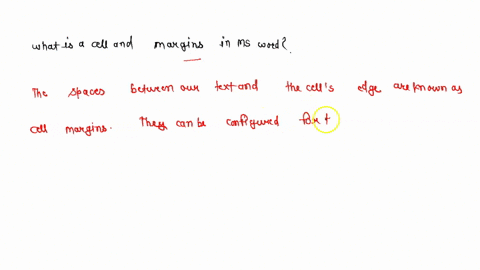 what is a cell and margins in MS word?
The spaces between our text and the cell's edge are known as
cell margins. They can be configured for t